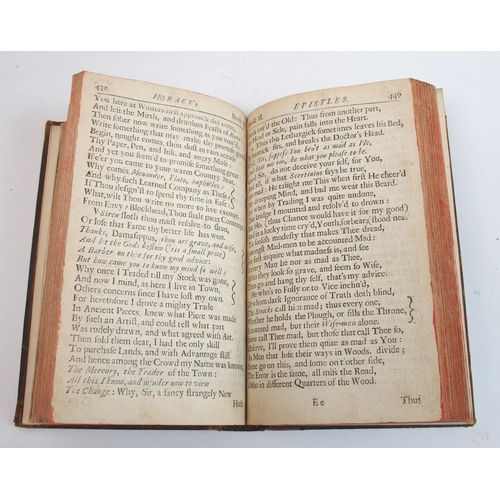 432
HORACE's
Book
You here at Winters
approach did come
And left the Mirth, and drunken Feasts of
Then sober now write something as you
Write something that may make the promise
Begin, nought comes, thou dost in vain
Thy Paper, Pen, and Ink, and angry Muse.
And yet you seem'd to promise something great,
If e'er you came to your warm Country Seat.
Why comes Menander, Plato,
And why such Learned Company as These,
If Thou design'st to spend thy time in Ease?
What, wilt Thou write no more to live exempt
From Envy? Blockhead, Thou shalt meet Contempt
Siren sloth thou must resolve to shun,
Or lose that Fame thy better life has won.
Thanks, Damasippus, thou art grave, and wise,
And let the Gods bestow
A Barber on thee for thy good advice
But how came you to know my mind so well?
Why once I Traded till my Stock was gone,
And now I mind, as here I live in Town,
Others concerns since I have lost my own.
For heretofore I drove a mighty Trade
In Ancient Pieces, knew what Piece was made
By such an Artist, and could tell what part
Was rudely drawn, and what agreed with Art.
Then fold them dear, I had the only skill
To purchase Lands, and with Advantage sell
And hence among the Crowd my Name was known,
The Mercury, the Trader of the Town:
All this I know, and wonder now to view
The Change: Why, Sir, a fancy strangely New
Hath
EPISTLES.
449
the Old: Thus from another part,
Head or Side, pain falls into the Heart.
Thus this Lethargick sometimes leaves his Bed,
fits, and breaks the Doctor's Head.
be what you please to be.
do not deceive your self, for You,
all, if what Stertinius says be true,
He taught me This when first He cheer'd
desponding Mind, and bad me wear this Beard.
By Trading I was quite undone,
bridge I mounted and resolv'd to drown:
(thus Chance would have it for my good)
in a lucky time cry'd, Youth, forbear, stood near
foolish modesty that makes Thee dread,
Mad-men to be accounted Mad:
enquire what madness is, and see
Man be not as mad as Thee,
look so grave, and seem so Wife,
go and hang thy self, that's my advice.
He who's to Folly or to Vice inclin'd,
dark Ignorance of Truth doth blind,
The Stoicks call him mad; thus every one,
he holds the Plough, or fills the Throne,
counted mad, but their Wiseman alone.
call Thee mad, but those that call Thee so,
I'll prove them quite as mad as You:
Men that lose their ways in Woods, divide;
go on this, and some on t'other side,
The Error is the same, all miss the Road,
in different Quarters of the Wood.
E e
Thus